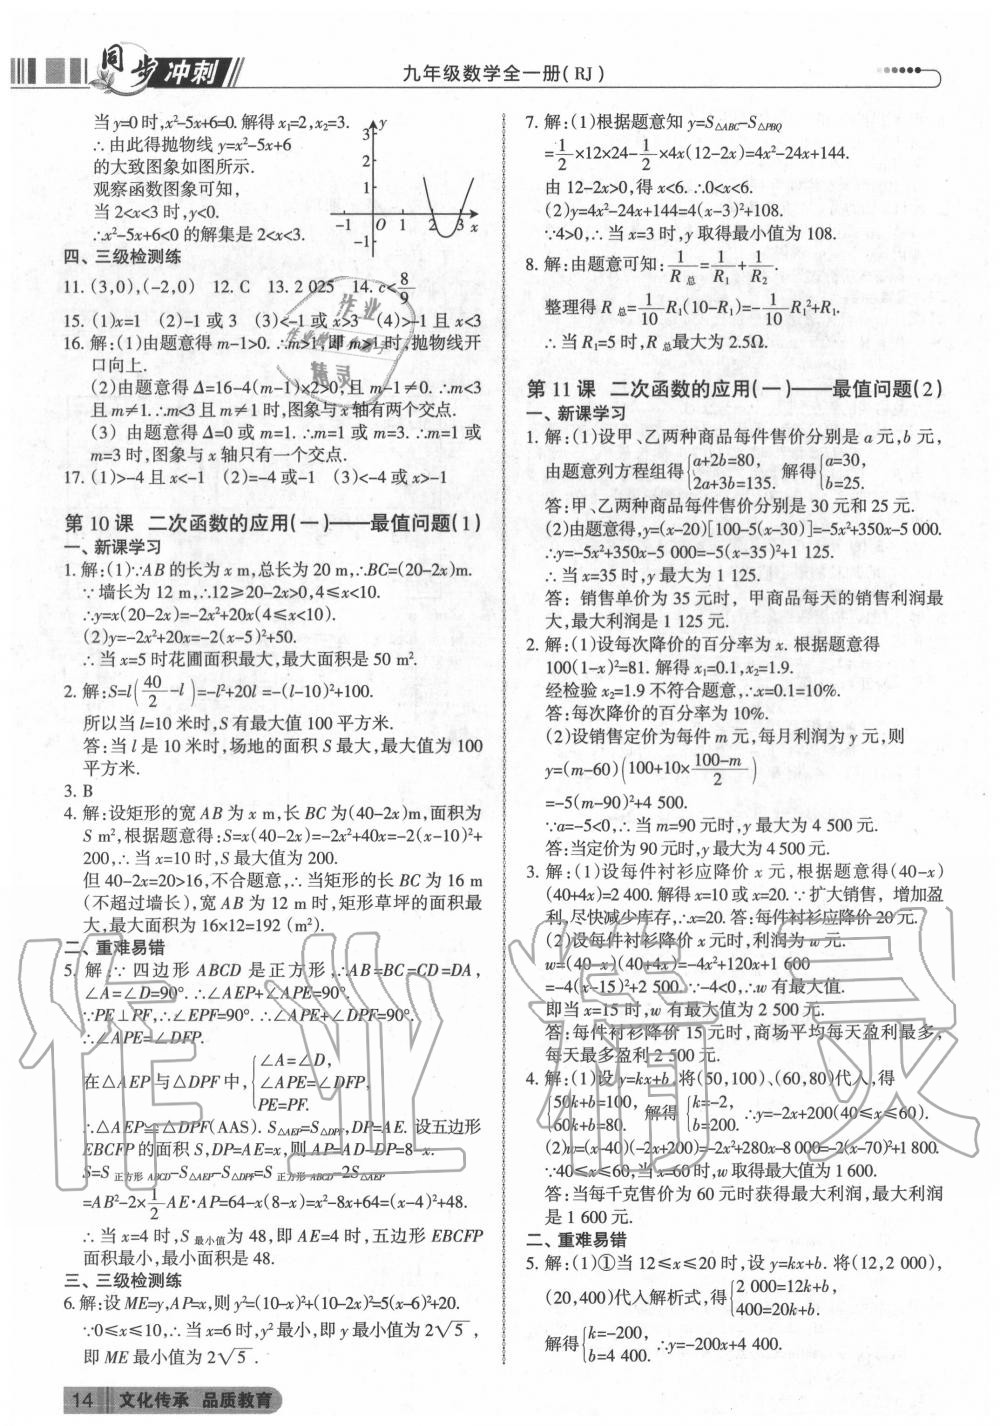 同步冲刺
九年级数学全一册(RJ)
当y=0时,x²-5x+6=0.解得x₁=2,x₂=3.
∴由此得抛物线y=x²-5x+6
的大致图象如图所示.
观察函数图象可知,
当2<x<3时,y<0.
∴x²-5x+6<0的解集是2<x<3.
y
3
2
1
-1 O 1 2 3 x
-1
四、三级检测练
11.(3,0),(-2,0) 12.C 13.2 025 14.c<8/9
15.(1)x=1 (2)-1或3 (3)<-1或x>3 (4)>-1且x<3
16.解:(1)由题意得m-1>0.∴m>1,即m>1时,抛物线开
口向上.
(2)由题意得Δ=16-4(m-1)×2>0,且m-1≠0.∴m<3
且m≠1.∴m<3且m≠1时,图象与x轴有两个交点.
(3)由题意得Δ=0或m=1.∴m=1或m=3.∴m=1或
m=3时,图象与x轴只有一个交点.
17.(1)>-4且x<-1 (2)=-4或-1 (3)<-4或x>-1
第10课 二次函数的应用(一)——最值问题(1)
一、新课学习
1.解:(1)∵AB的长为x m,总长为20 m,∴BC=(20-2x)m.
∵墙长为12 m,∴12≥20-2x>0,4≤x<10.
∴y=x(20-2x)=-2x²+20x(4≤x<10).
(2)y=-2x²+20x=-2(x-5)²+50.
∴当x=5时花圃面积最大,最大面积是50 m².
2.解:S=l(40/2-l)=-l²+20l=-(l-10)²+100.
所以当l=10米时,S有最大值100平方米.
答:当l是10米时,场地的面积S最大,最大值为100
平方米.
3.B
4.解:设矩形的宽AB为x m,长BC为(40-2x)m,面积为
S m²,根据题意得:S=x(40-2x)=-2x²+40x=-2(x-10)²+
200,∴当x=10时,S最大值为200.
但40-2x=20>16,不合题意,∴当矩形的长BC为16 m
(不超过墙长),宽AB为12 m时,矩形草坪的面积最
大,最大面积为16×12=192(m²).
二、重难易错
5.解:∵四边形ABCD是正方形,∴AB=BC=CD=DA,
∠A=∠D=90°.∴∠AEP+∠APE=90°.
∵PE⊥PF,∴∠EPF=90°.∴∠APE+∠DPF=90°.
∴∠APE=∠DFP.
在△AEP与△DPF中,{∠A=∠D,
∠APE=∠DFP,
PE=PF.
∴△AEP≌△DPF(AAS).S△AEP=S△DPF,DP=AE.设五边形
EBCFP的面积S,DP=AE=x,则AP=AD-DP=8-x.
S=S正方形ABCD-S△AEP-S△DPF=S正方形ABCD-2S△AEP
=AB²-2×1/2AE·AP=64-x(8-x)=x²-8x+64=(x-4)²+48.
∴当x=4时,S最小值为48,即AE=4时,五边形EBCFP
面积最小,最小面积是48.
三、三级检测练
6.解:设ME=y,AP=x,则y²=(10-x)²+(10-2x)²=5(x-6)²+20.
∵0≤x≤10,∴当x=6时,y²最小,即y最小值为2√5,
即ME最小值为2√5.
7.解:(1)根据题意知y=S△ABC-S△PBQ
=1/2×12×24-1/2×4x(12-2x)=4x²-24x+144.
由12-2x>0,得x<6.∴0<x<6.
(2)y=4x²-24x+144=4(x-3)²+108.
∵4>0,∴当x=3时,y取得最小值为108.
8.解:由题意可知:1/R总=1/R₁+1/R₂.
整理得R总=1/10R₁(10-R₁)=-1/10R₁²+R₁.
∴当R₁=5时,R总最大为2.5Ω.
第11课 二次函数的应用(一)——最值问题(2)
一、新课学习
1.解:(1)设甲、乙两种商品每件售价分别是a元,b元,
由题意列方程组得{a+2b=80, 2a+3b=135. 解得{a=30, b=25.
答:甲、乙两种商品每件售价分别是30元和25元.
(2)由题意得,y=(x-20)[100-5(x-30)]=-5x²+350x-5 000.
∴y=-5x²+350x-5 000=-5(x-35)²+1 125.
∴当x=35时,y最大为1 125.
答:销售单价为35元时,甲商品每天的销售利润最
大,最大利润是1 125元.
2.解:(1)设每次降价的百分率为x.根据题意得
100(1-x)²=81.解得x₁=0.1,x₂=1.9.
经检验x₂=1.9不符合题意,∴x=0.1=10%.
答:每次降价的百分率为10%.
(2)设销售定价为每件m元,每月利润为y元,则
y=(m-60)(100+10×(100-m)/2)
=-5(m-90)²+4 500.
∵a=-5<0,∴当m=90元时,y最大为4 500元.
答:当定价为90元时,y最大为4 500元.
3.解:(1)设每件衬衫应降价x元,根据题意得(40-x)
(40+4x)=2 400.解得x=10或x=20.∵扩大销售,增加盈
利,尽快减少库存,∴x=20.答:每件衬衫应降价20元.
(2)设每件衬衫降价x元时,利润为w元.
w=(40-x)(40+4x)=-4x²+120x+1 600
=-4(x-15)²+2 500.∵-4<0,∴w有最大值.
即当x=15时,w有最大值为2 500元.
答:每件衬衫降价15元时,商场平均每天盈利最多,
每天最多盈利2 500元.
4.解:(1)设y=kx+b.将(50,100)、(60,80)代入,得
{50k+b=100, 60k+b=80. 解得{k=-2, b=200. ∴y=-2x+200(40≤x≤60).
(2)n=(x-40)(-2x+200)=-2x²+280x-8 000=-2(x-70)²+1 800.
∵40≤x≤60,当x=60时,w取得最大值为1 600.
答:当每千克售价为60元时获得最大利润,最大利润
是1 600元.
二、重难易错
5.解:(1)①当12≤x≤20时,设y=kx+b.将(12,2 000),
(20,400)代入解析式,得{2 000=12k+b, 400=20k+b.
解得{k=-200, b=4 400. ∴y=-200x+4 400.
作业精灵
14 文化传承 品质教育